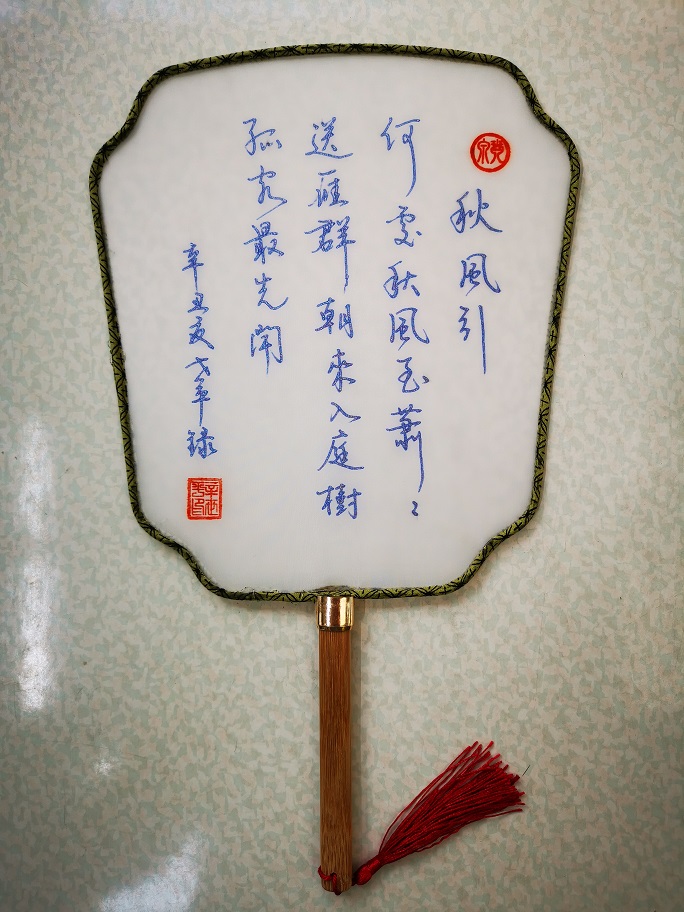 秋風引
何處秋風至蕭〻
送雁群朝來入庭樹
孤客最先聞
辛丑夏錄